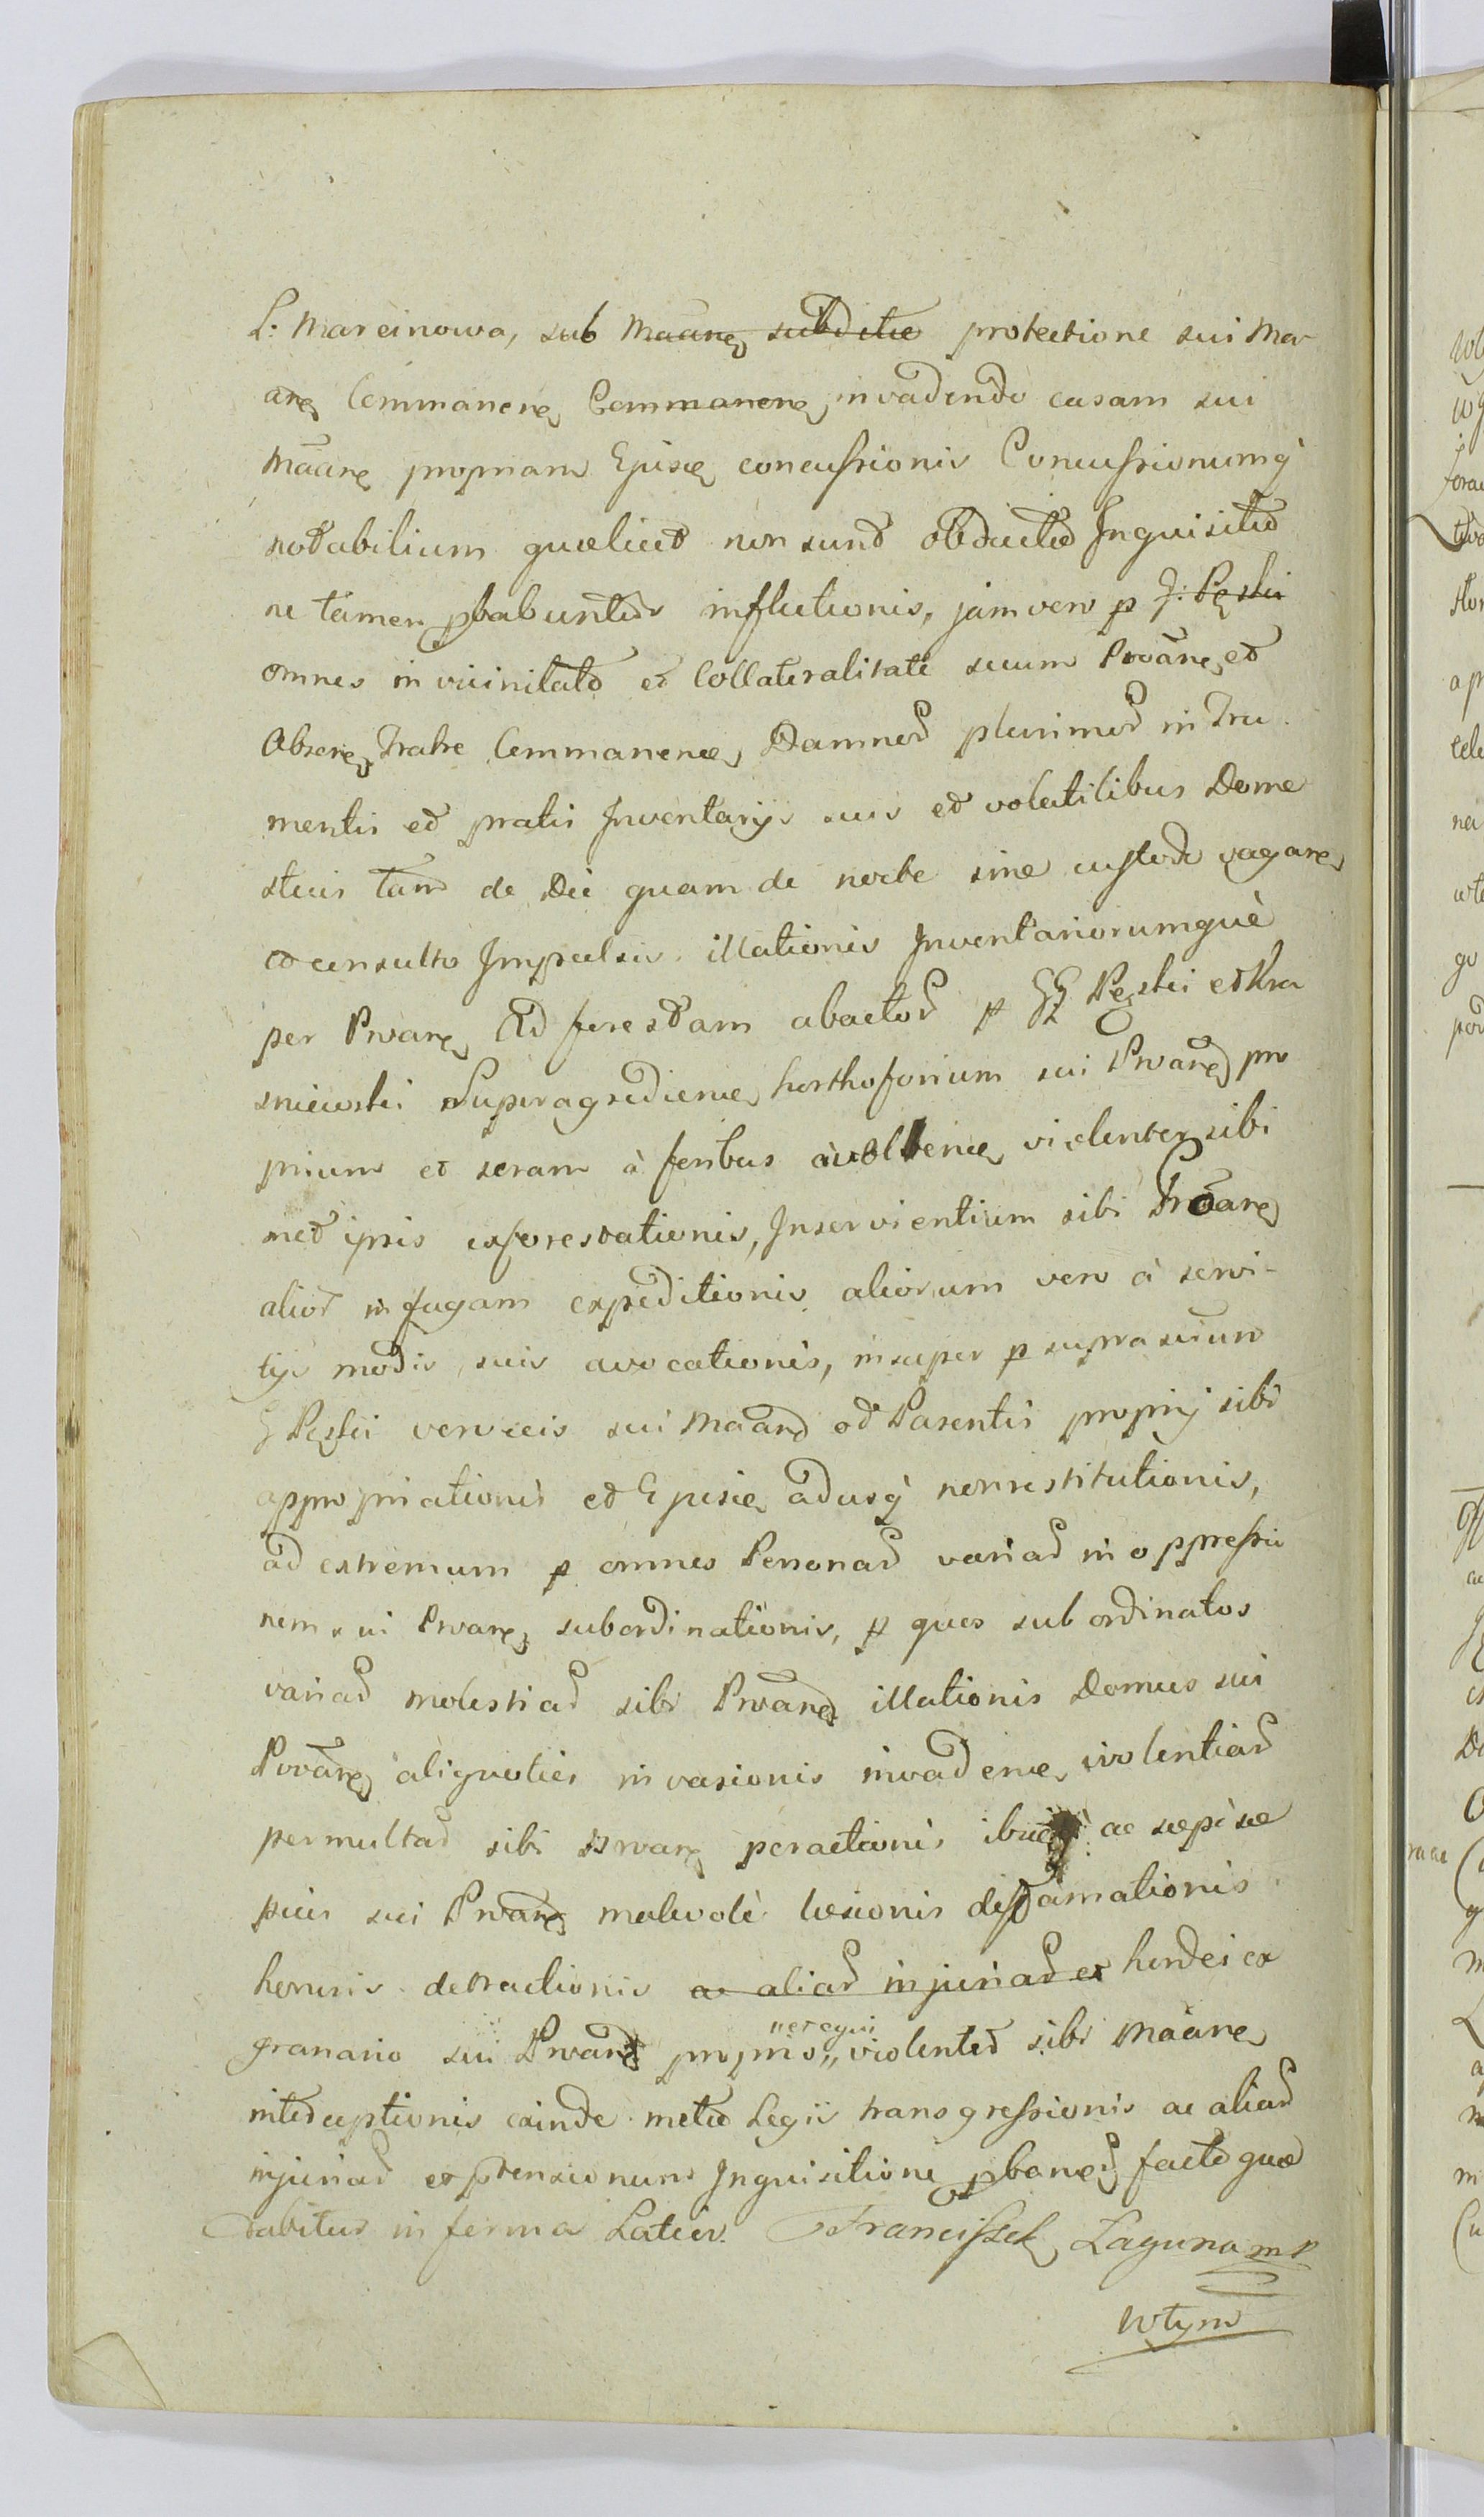 L: Marcinowa, sub Maane subditae protectione sui Ma-
ane Commanene Commanene invadendo casam sui
Maane propriam Ejusce concussionis Concussionumq
notabilium quaelicet non sunt obductae Inquisitio
ne tamen pbabuntur inflictionis, jam vero p G: Peski
omnes in vicinitate et Collateralitate secum Prvane et
Obsere Trahe Commanenes Damnor plurimor in Tru
mentis et pratis Inventarijs suis et volatilibus Dome
sticis tam de Die quam de nocte sine custode vagane
et consulto Impulsis illationis Inventariorumque
per Prvane Ad forestam abactor p GG Peski et Kra
sniewski Supragrediene horthoforium sui Prvane pro
prium et seram à foribus avellene violenter sibi
met ipsis exforestationis, Inservientium sibi Prvane
alior in fugam expeditionis aliorum vero à servi-
tijs modis suis avocationis, insuper p suprascrium
G Peski vervecis sui Maane et Parentis proprij sibi
appropriationis et Ejusce adusq nonrestitutionis,
ad extremum p omnes Personas varias in oppressio
nem sui Prvane subordinationis, p quos subordinatos
varias molestias sibi Prvane illationis Domus sui
Prvane aliquoties invasionis invadene violentias
permultas sibi Prvane peractionis ac saepise
picis sui Prvane malevolè laesionis diffamationis
honoris detractionis ac alias injurias et hordei ex
granario sui Prvane proprio „ violenter sibi Maane
interceptionis exinde metae Legis transgressionis ac alias
injurias expensionum Inquisitione pbane facto quae
dabitur in forma Latior. Franciszek Laguna mp
Wtym